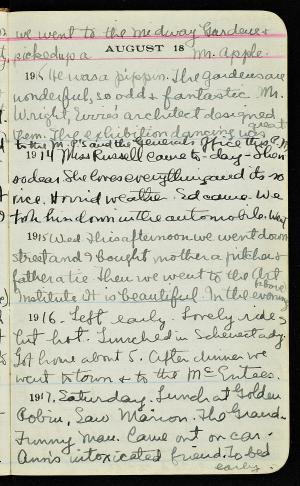 we went to the Midway Gardens &
picked up a Mr. Apple.
AUGUST 18
191 He was a pippin. The gardens are
wonderful, so odd & fantastic. Mr.
Wright, Evvie's architect designed
them. The exhibition dancing was great
to the M.P.'s and the Generals Office this A.M.
1914 Miss Russell came to-day - She's
so dear. She loves everything and its so
nice. Horrid weather. Ed came. We
took him down in the automobile.
1915 Wed. This afternoon we went down
street and I bought mother a pitcher &
father a tie. Then we went to the Art
Institute. It is beautiful. In the evening
1916. Left early. Lovely ride &
but hot. Lunched in Schenectady.
Got home about 5. After dinner we
went to town & to the McEntees.
1917. Saturday. Lunch at Golden
Robin, Saw Marion. The Grand.
Funny man. Came out on car.
Ann's intoxicated friend. To bed
early.